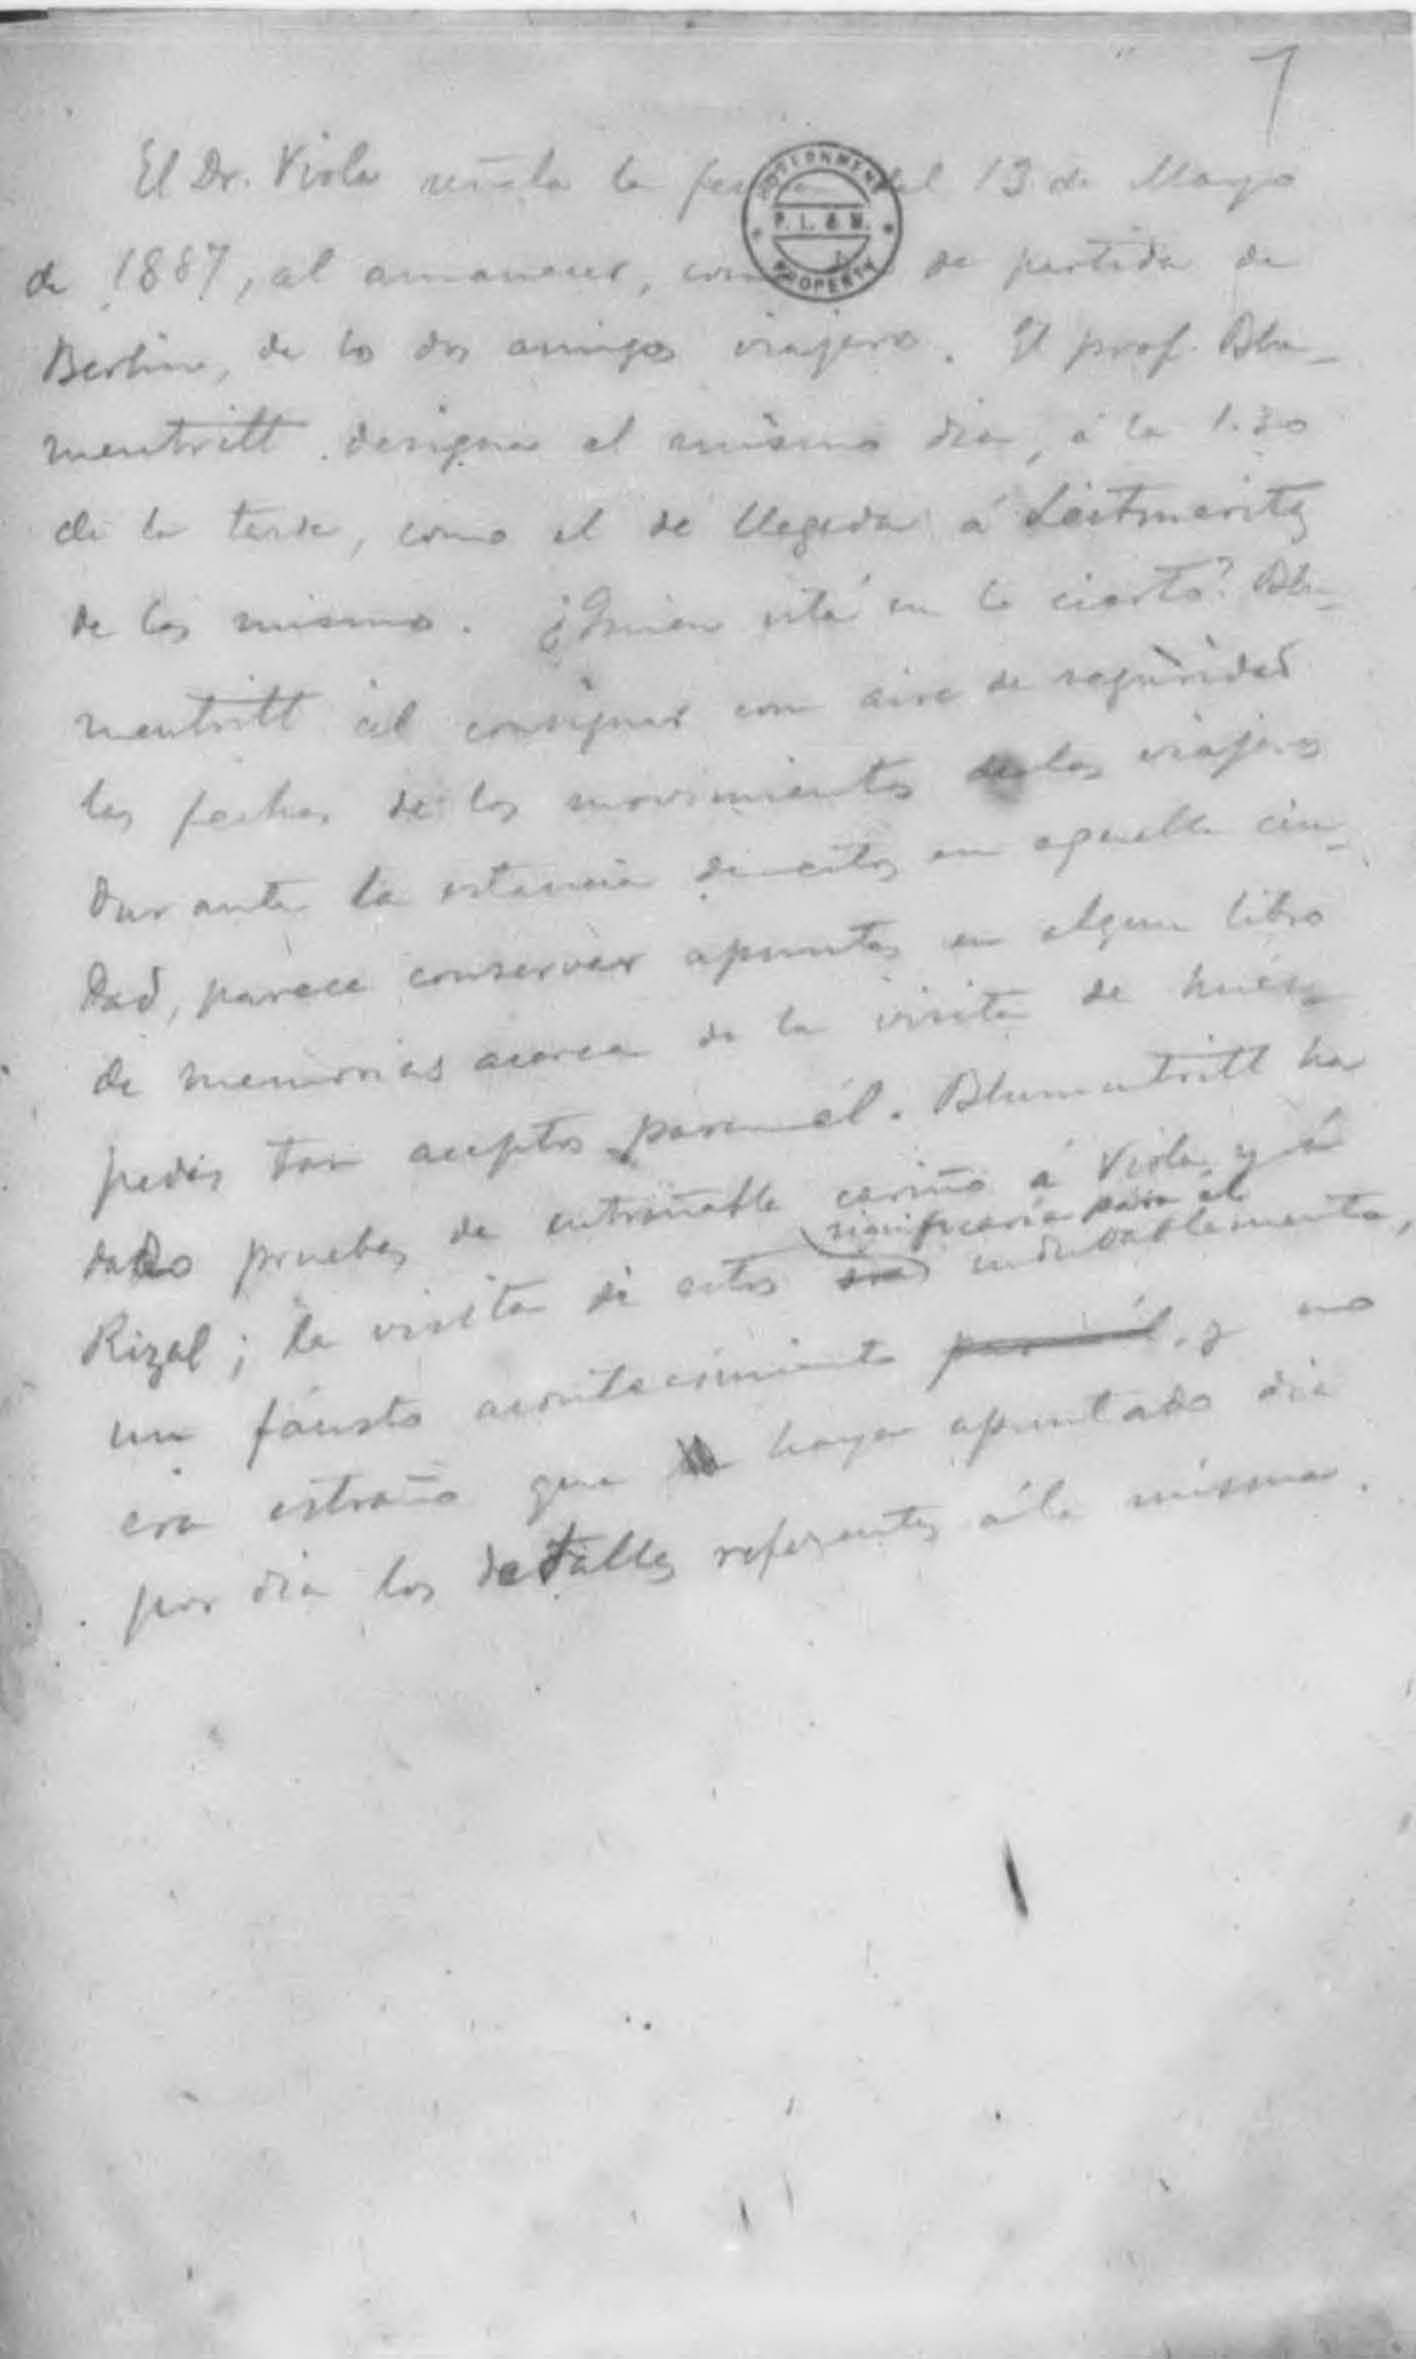 7
El Dr. Viola señala la fecha del 13 de Mayo
GOVERNMENT
P. L. & M.
PROPERTY
de 1887, al amanecer, como de partida de
Berlin, de los dos amigos viajeros. El prof. Blu-
mentritt designa el mismo dia, á la 1.30
de la tarde, como el de llegada á Leitmeritz
de los mismos. ¿Quien está en lo cierto? Blu-
mentritt al consignar con aire de seguridad
las fechas de los movimientos de los viajeros
durante la estancia de estos en aquella ciu-
dad, parece conservar apuntes en algun libro
de memorias acerca de la visita de hués-
pedes tan aceptos para él. Blumentritt ha
dado pruebas de entrañable cariño á Viola y á
significaría para él
Rizal; la visita de estos indudablemente,
un fausto acontecimiento para él, y no
era estraño que haya apuntado dia
por dia los detalles referentes á la misma.